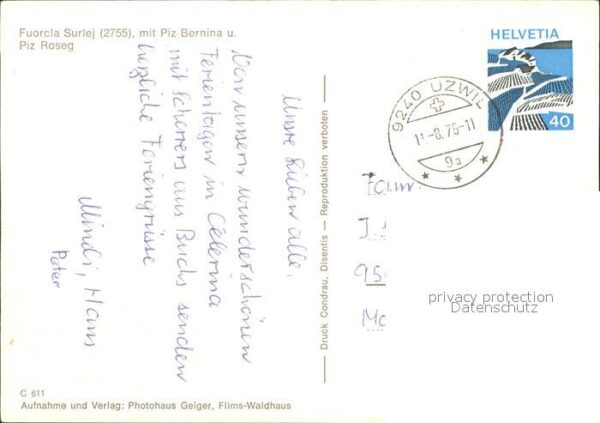 Fuorcla Surlej (2755), mit Piz Bernina u.
Piz Roseg
HELVETIA
40
9240 UZWIL
11-8.75-11
9a
Unsre Lieben alle.
Von unsern wunderschönen
Ferientagen in Celerina
mit Scherrers aus Buchs senden
herzliche Feriengrüsse
Hans
Peter
Fam.
J.
95
privacy protection
Datenschutz
Druck Condrau, Disentis — Reproduktion verboten
C 611
Aufnahme und Verlag: Photohaus Geiger, Flims-Waldhaus